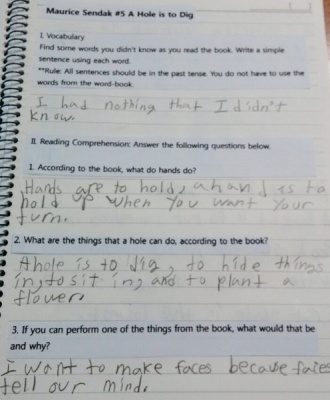 Maurice Sendak #5 A Hole is to Dig
I. Vocabulary
Find some words you didn't know as you read the book. Write a simple
sentence using each word.
**Rule: All sentences should be in the past tense. You do not have to use the
words from the word-book.
I had nothing that I didn't
know.
II. Reading Comprehension: Answer the following questions below.
1. According to the book, what do hands do?
Hands are to hold, a hand is to
hold up when you want your
turn.
2. What are the things that a hole can do, according to the book?
A hole is to dig, to hide things
in, to sit in, and to plant a
flower.
3. If you can perform one of the things from the book, what would that be
and why?
I want to make faces because faces
tell our mind.